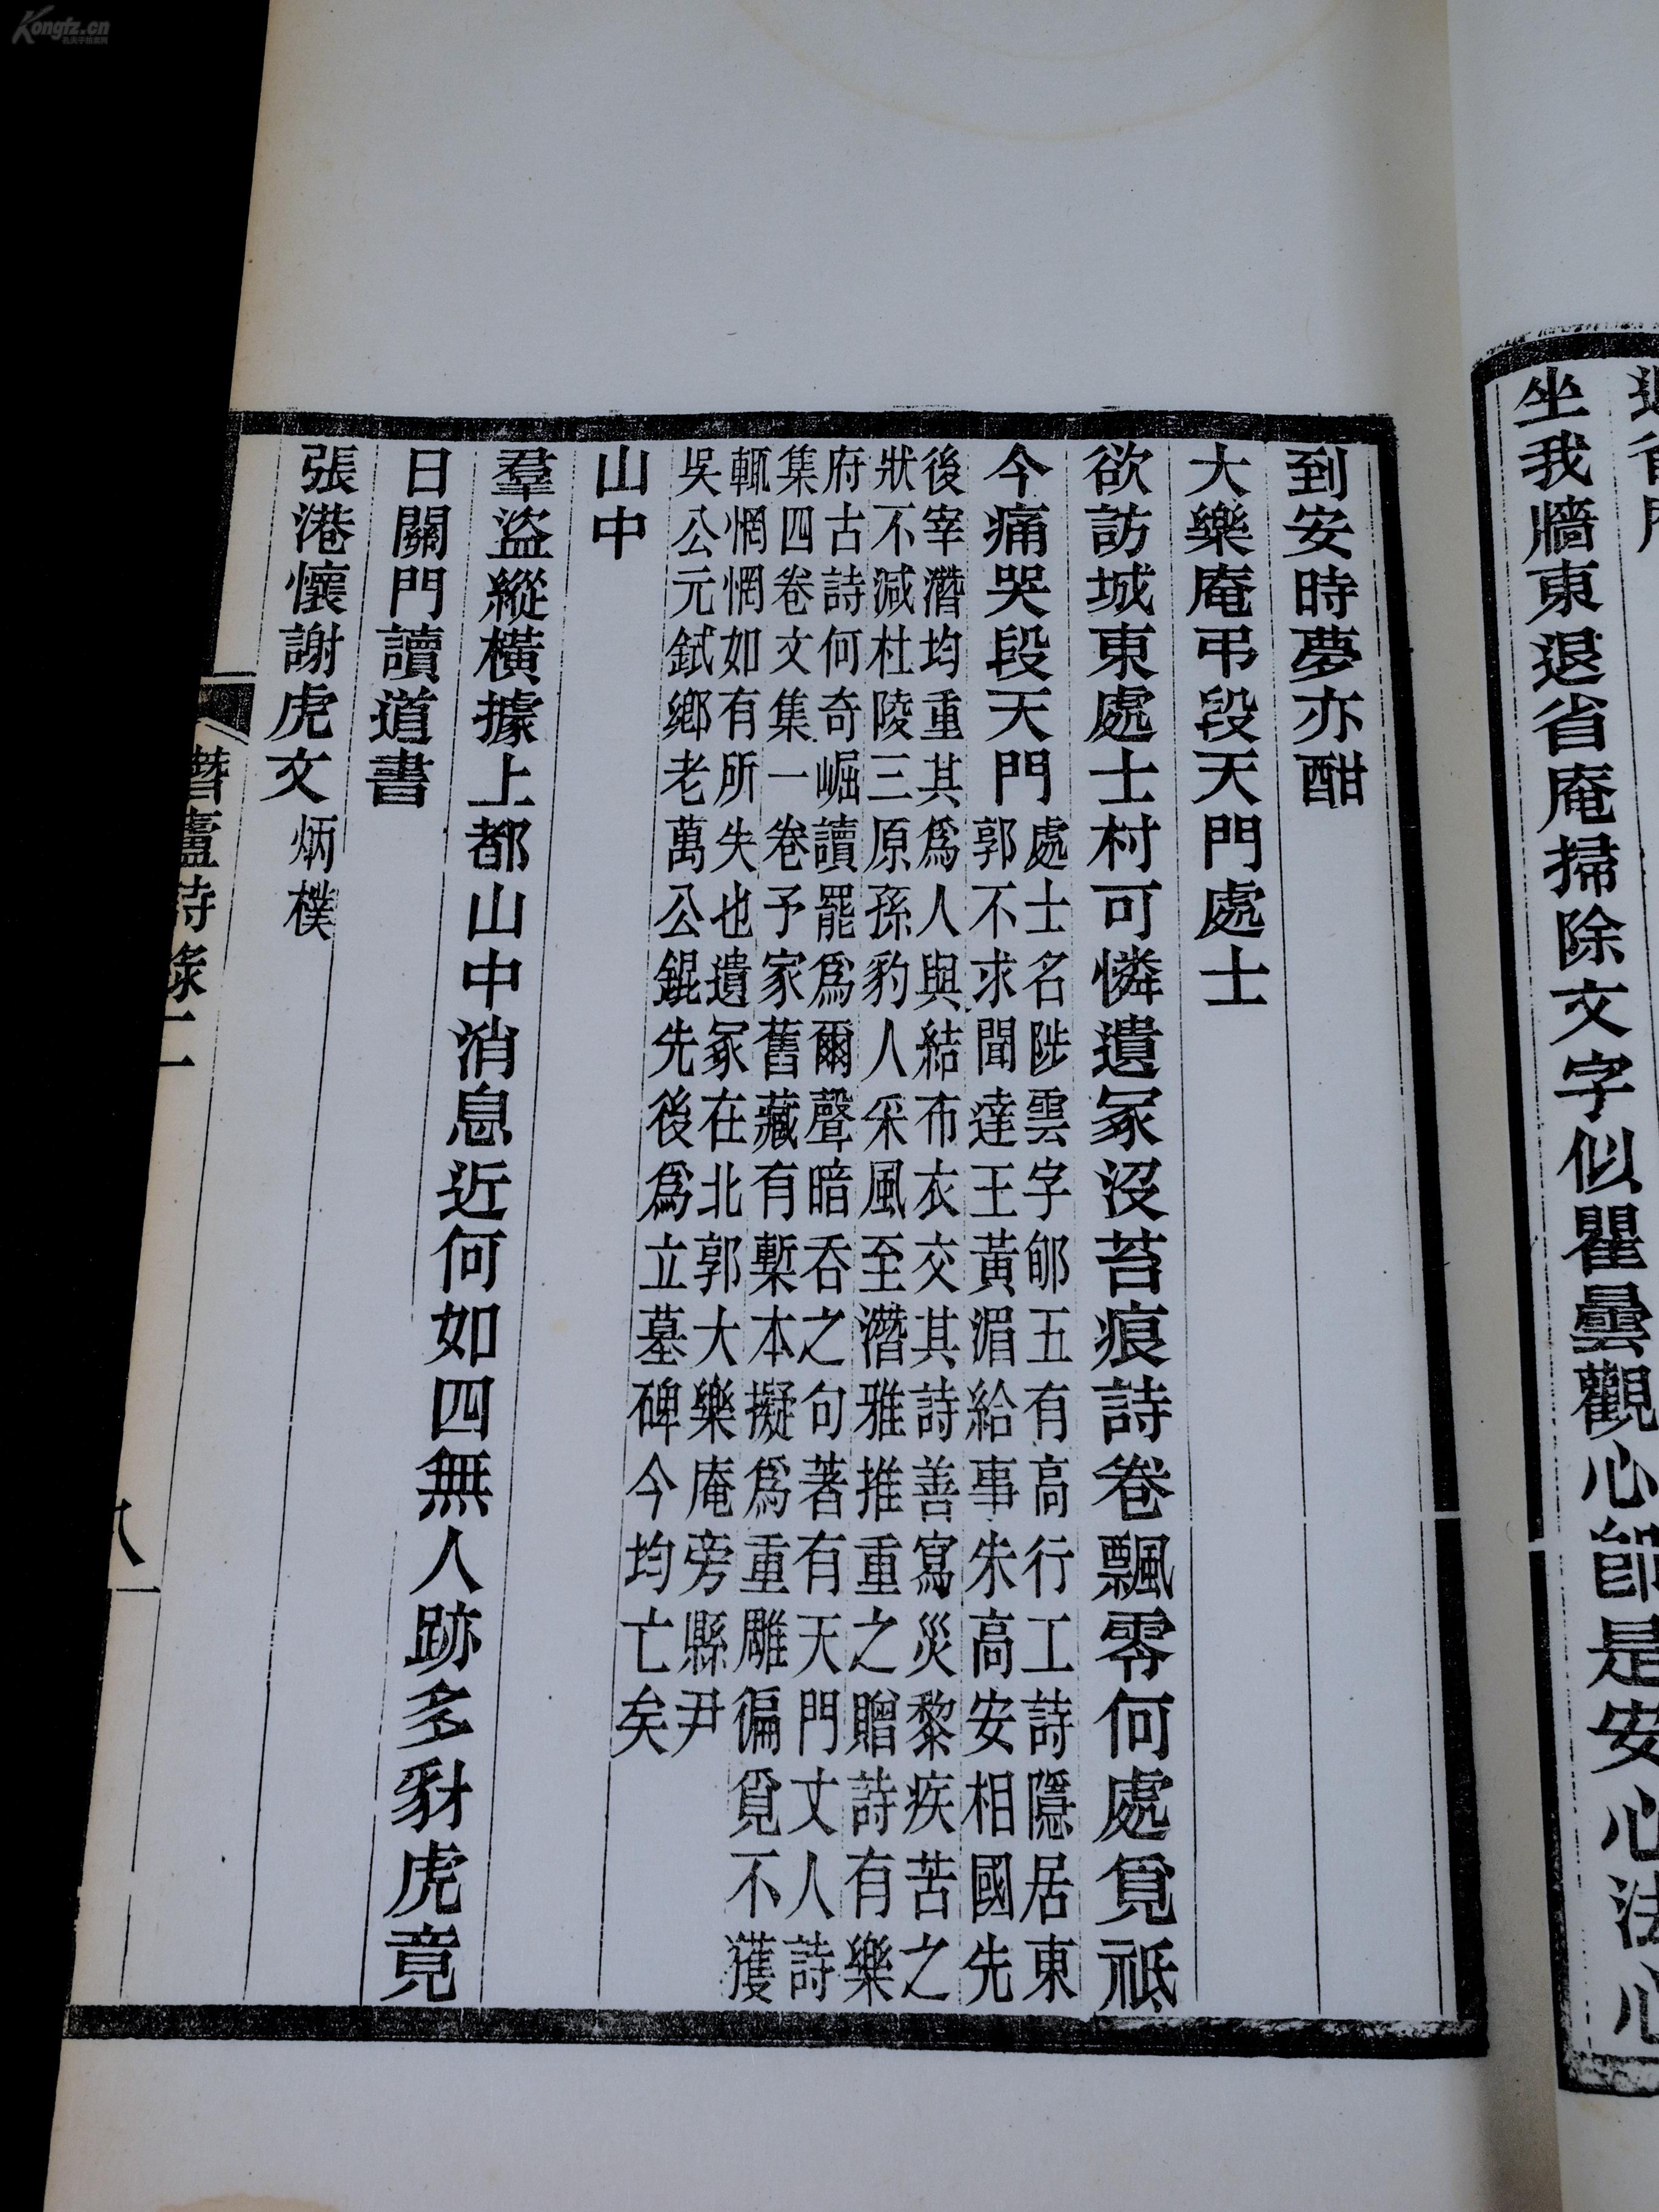 坐我牆東退省庵掃除文字似瞿曇觀心卽是安心法心
到安時夢亦酣
大樂庵弔段天門處士
欲訪城東處士村可憐遺冢沒苔痕詩卷飄零何處覓祗
今痛哭段天門
處士名陟雲字郇五有高行工詩隱居東
郭不求聞達王黃湄給事朱高安相國先
後宰潛均重其爲人與結布衣交其詩善寫災黎疾苦之
狀不減杜陵三原孫豹人采風至潛雅推重之贈詩有樂
府古詩何奇崛讀罷爲爾聲暗吞之句著有天門文人詩
集四卷文集一卷予家舊藏有槧本擬爲重雕徧覓不獲
輒惘惘如有所失也遺冢在北郭大樂庵旁縣尹
吳公元鉽鄉老萬公錕先後爲立墓碑今均亡矣
山中
羣盜縱橫據上都山中消息近何如四無人跡多豺虎竟
日關門讀道書
張港懷謝虎文炳樸
潛廬詩錄二
八
Kongfz.cn